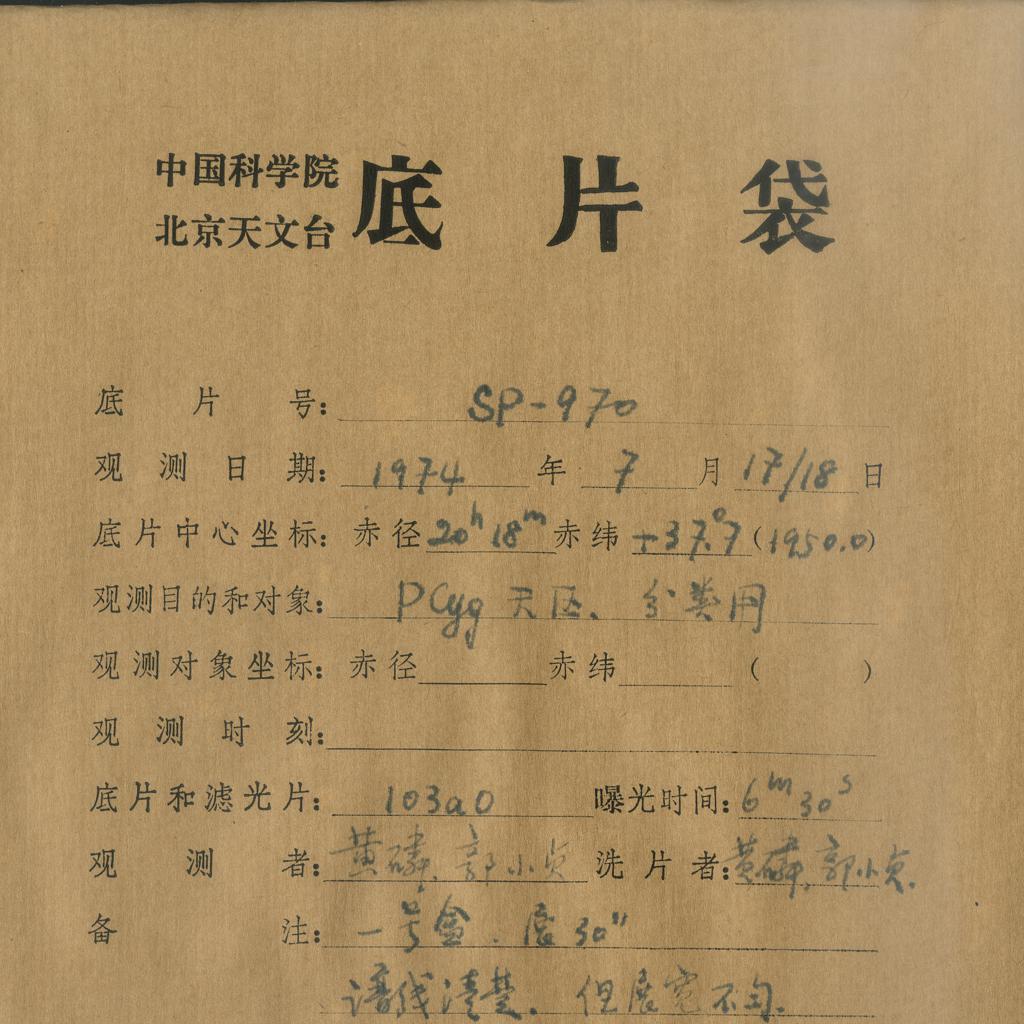 中国科学院
北京天文台
底片袋
底片号：SP-970
观测日期：1974年7月17/18日
底片中心坐标：赤径20h18m赤纬+37.°7(1950.0)
观测目的和对象：PCyg天区、分类用
观测对象坐标：赤径 赤纬 ( )
观测时刻：
底片和滤光片：103aO 曝光时间：6m30s
观测者：黄磷、郭小贞 洗片者：黄磷、郭小贞.
备注：一号盒．展30"
谱线清楚．但展宽不匀.